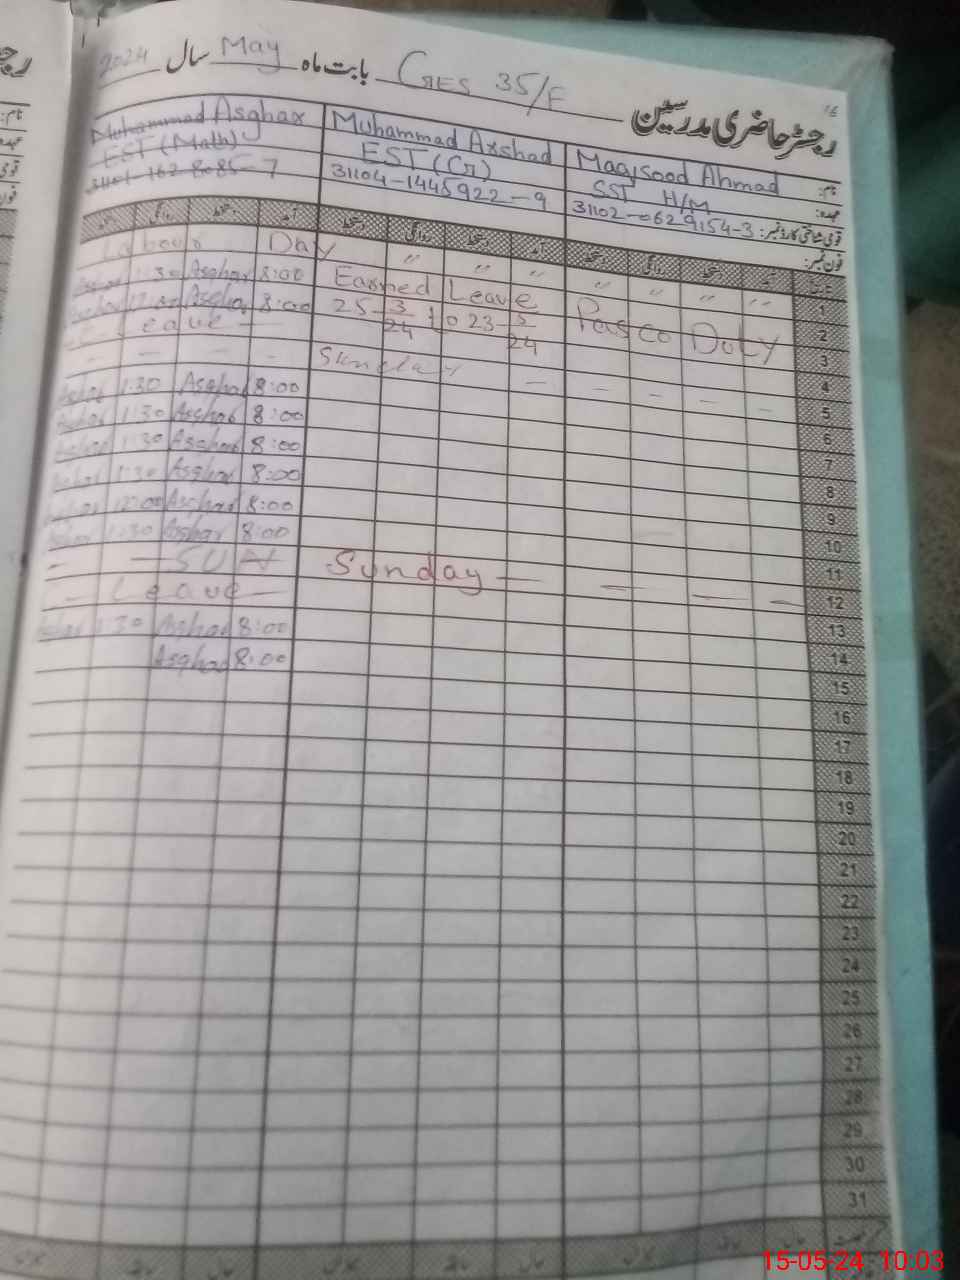 رجسٹر حاضری مدرسین بابت ماہ May سال 2024
GES 35/F
نام: Maqsood Ahmad Muhammad Arshad Muhammad Asghar
عہدہ: SST H/M EST (G) EST (Math)
قومی شناختی کارڈ نمبر: 31102-0629154-3 31104-1445922-9
فون نمبر:
آمد دستخط روانگی دستخط آمد دستخط روانگی دستخط
1 Labour Day " " " " " " "
2 Asghar 1:30 Asghar 8:00 Earned Leave
3 Asghar 8:00 25-3/24 to 23-5/24 Pasco Duty
4 Leave
5 Sunday
6 1:30 Asghar 8:00
7 1:30 Asghar 8:00
8 1:30 Asghar 8:00
9 1:30 Asghar 8:00
10 12:00 Asghar 8:00
11 1:30 Asghar 8:00
12 SUN Sunday
13 Leave
14 1:30 Asghar 8:00
15 Asghar 8:00
16
17
18
19
20
21
22
23
24
25
26
27
28
29
30
31
15-05-24 10:03